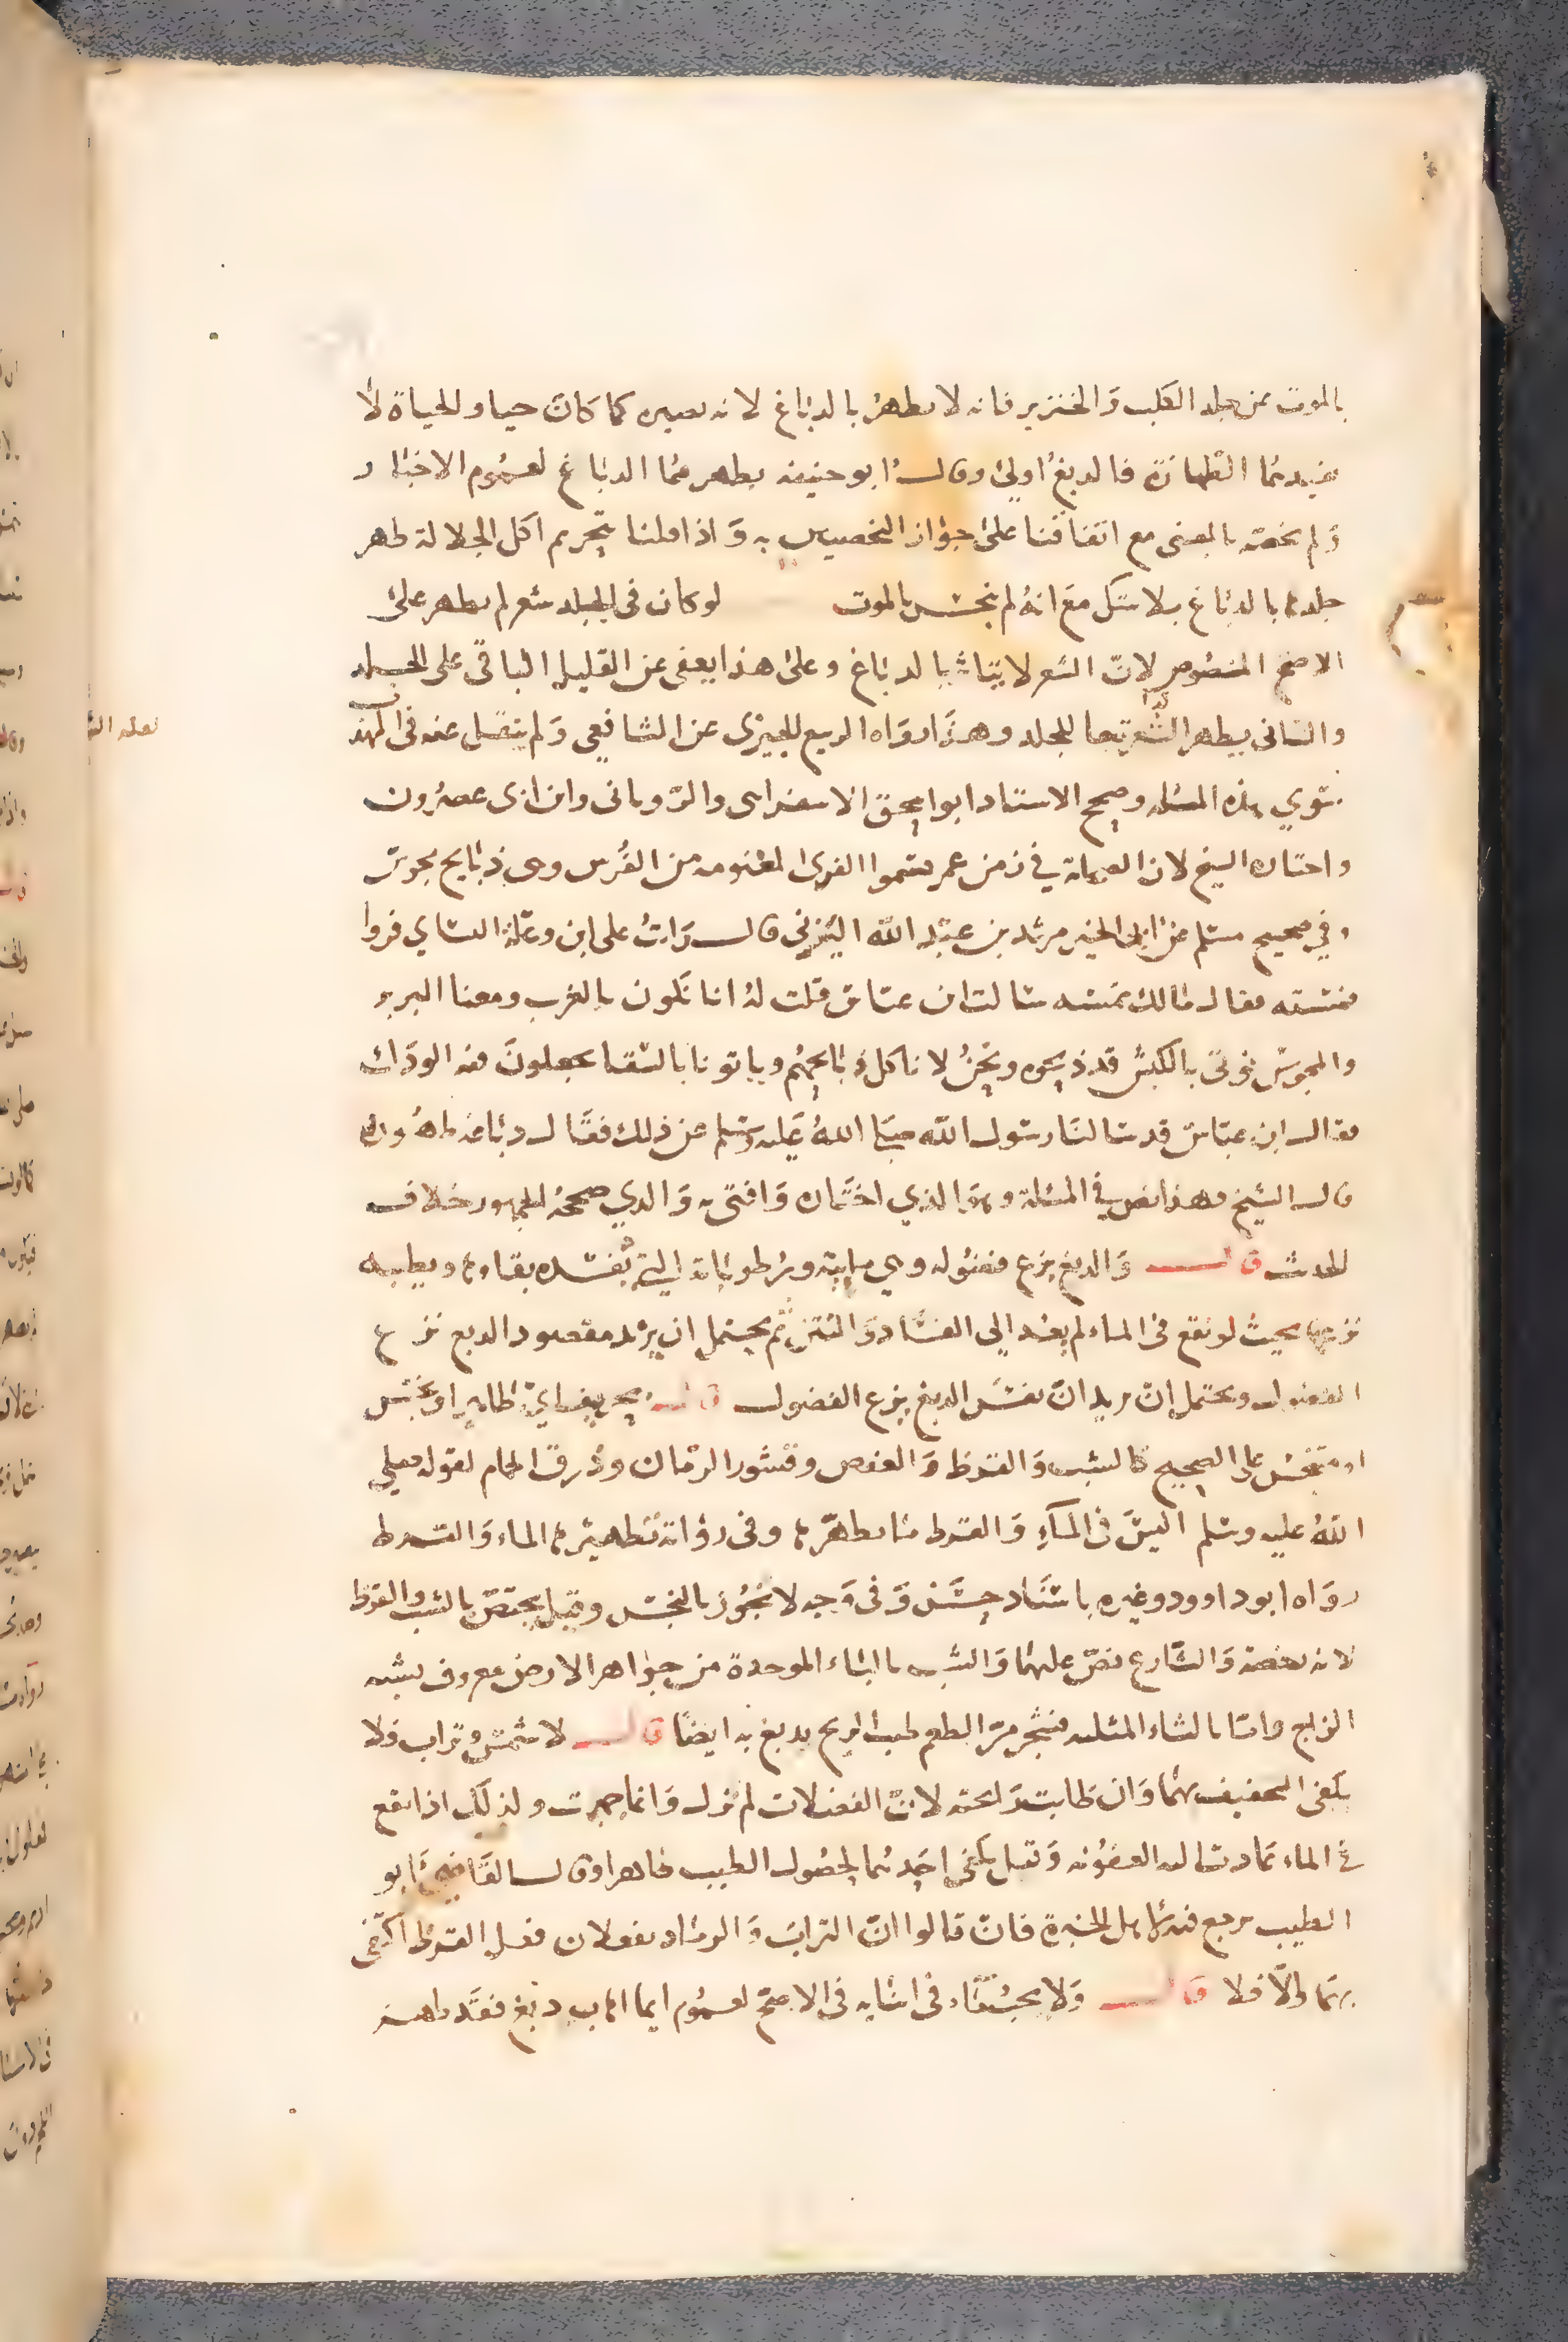 بالموت عن جلد الكلب والخنزير فانه لا يطهر بالدباغ لانه يصيره كما كان حيا والحياة لا
تفيدهما الطهارة فالدبغ اولى وقال ابو حنيفه يطهر هما الدباغ لعموم الاخبار
ولم نخصه بالمعنى مع اتفاقنا على جواز التخصيص به واذا قلنا بتحريم اكل الجلالة طهر
جلدها بالدباغ بلا شك مع انه لم ينجس بالموت لو كان في الجلد شعر لم يطهر على
الاصح المنصوص لان الشعر لا يتاثر بالدباغ وعلى هذا يعفى عن القليل الباقي على الجلد
والثاني يطهر الشعر تبعا للجلد وهذا رواه الربيع الجيزي عن الشافعي ولم ينقل عنه في المهذب
سوي هذه المسئله وصحح الاستاذ ابو اسحق الاسفراىى والروياني وابن ابى عصرون
واختاره الشيخ لان الصحابة في زمن عمر قسموا الفرى المغنومه من الفرس وهى ذبايح مجوس
وفي صحيح مسلم عن ابى الخير مرثد بن عبد الله اليزني قال رايت على ابن وعلة السباي فروا
فمسسته فقال مالك تمسه سالت ابن عباس قلت له انا نكون بالمغرب ومعنا البربر
والمجوس نوتى بالكبش قد ذبحوه ونحن لا ناكل ذبائحهم وياتونا بالسقا يجعلون فيه الودك
فقال ابن عباس قد سالنا رسول الله صلى الله عليه وسلم عن ذلك فقال دباغه طهوره
قال الشيخ فهذا نص في المسئلة وهو الذي اختاره وافتى به والذي صححه الجمهور خلاف
الحديث قال والدبغ نزع فضوله وهي مايته ورطوباته التي يفسده بقاوها ويطيبه
نزعها بحيث لو نقع في الماء لم يعد الي الفساد والنتن ثم يحتمل ان يريد مقصود الدبغ نزع
الفضول ويحتمل ان يريد ان نفس الدبغ نزع الفضول قال بحريف اي طاهر او نجس
او متنجس على الصحيح كالشب والقرظ والعفص وقشور الرمان وذرق الحمام لقوله صلي
الله عليه وسلم اليس في الماء والقرظ ما يطهرها وفي رواية يطهرها الماء والقرظ
رواه ابو داوود وغيره باسناد حسن وفي وجه لا يجوز بالنجس وقيل يختص بالشب والقرظ
لانه رخصة والشارع نص عليهما والشب بالباء الموحدة من جواهر الارض معروف يشبه
الزاج واما بالثاء المثلثه فشجر مر الطعم طيب الريح يدبغ به ايضا قال لا شمس وتراب فلا
يكفى التجفيف بهما وان طابت رائحته لان الفضلات لم تزل وانما جمدت ولذلك اذا نقع
في الماء عادت اليه العفونه وقيل يكفى احدهما لحصول الطيب ظاهرا وقال القاضي ابو
الطيب يرجع فيه لاهل الخبرة فان قالوا ان التراب والرماد يفعلان فعل القرظ اكتفى
بهما والا فلا قال ولا يجب الماء في اثنايه في الاصح لعموم ايما اهاب دبغ فقد طهر